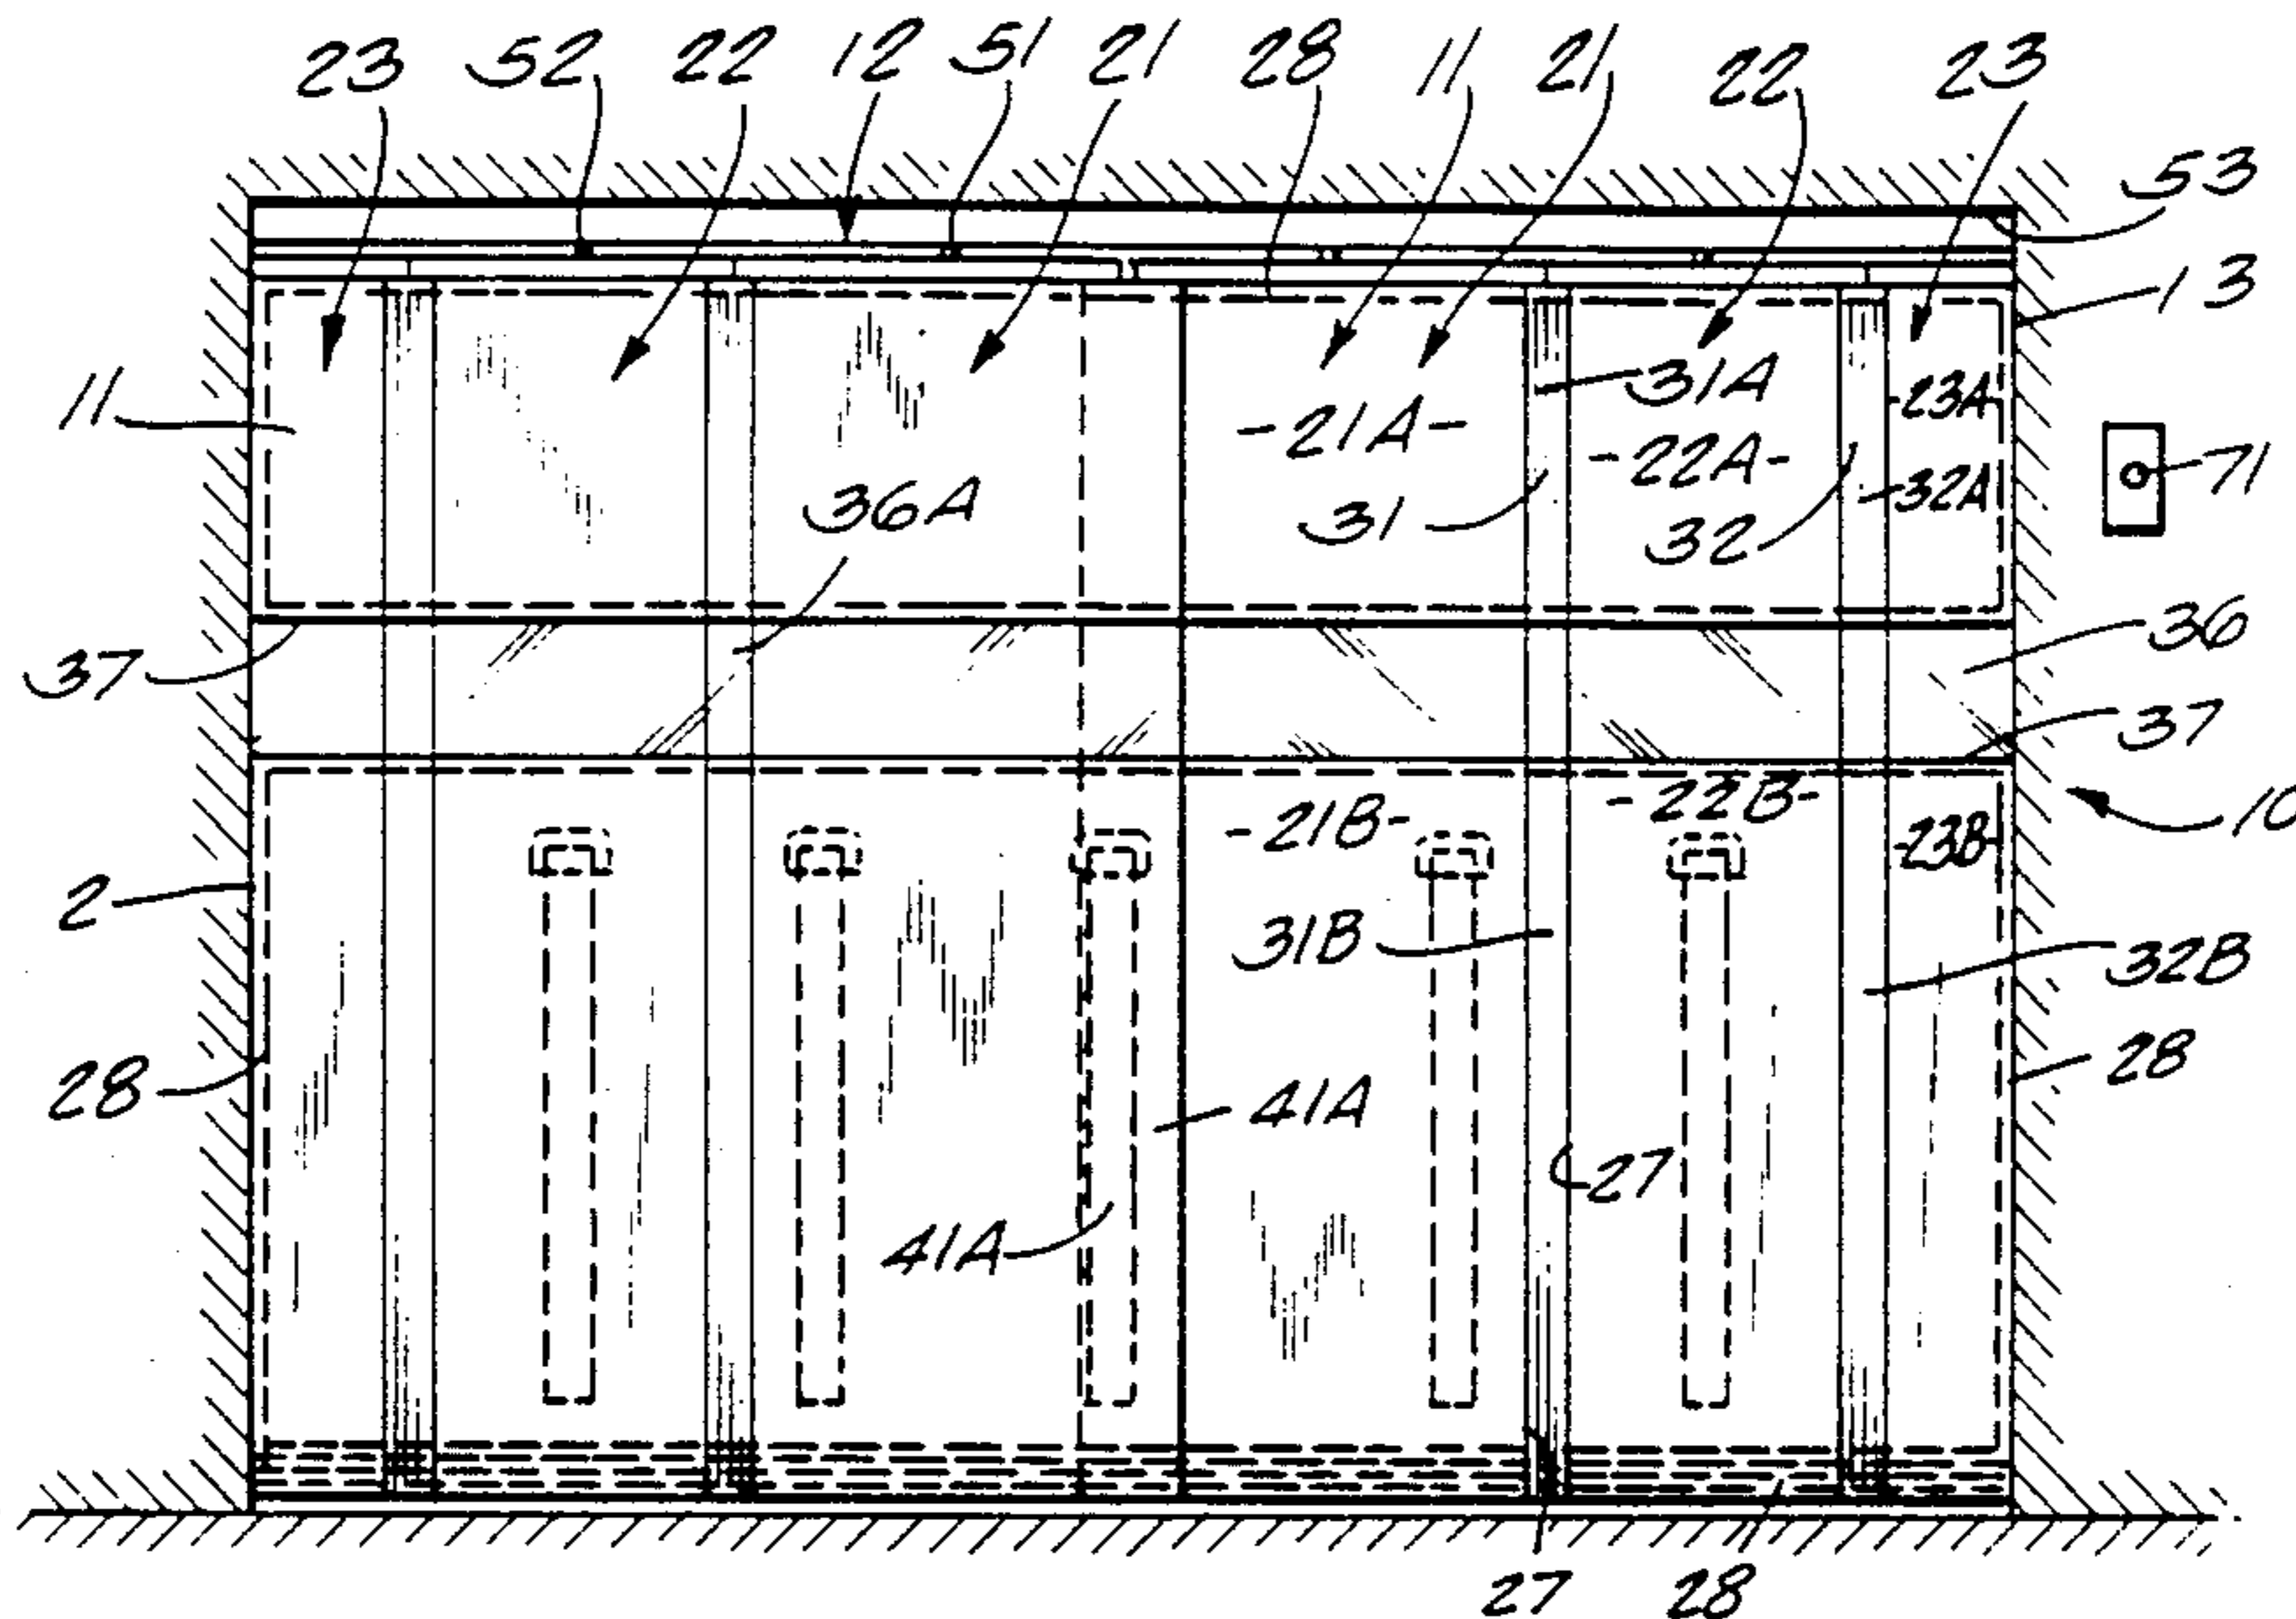 23 52 22 12 51 21 28 11 21 22 23
53
13
11 31A 23A
-21A- -22A- 71
36A 31 32 32A
37 36
37
-21B- -22B- 10
2 23B
31B 32B
28 41A 28
27
41A
27 28